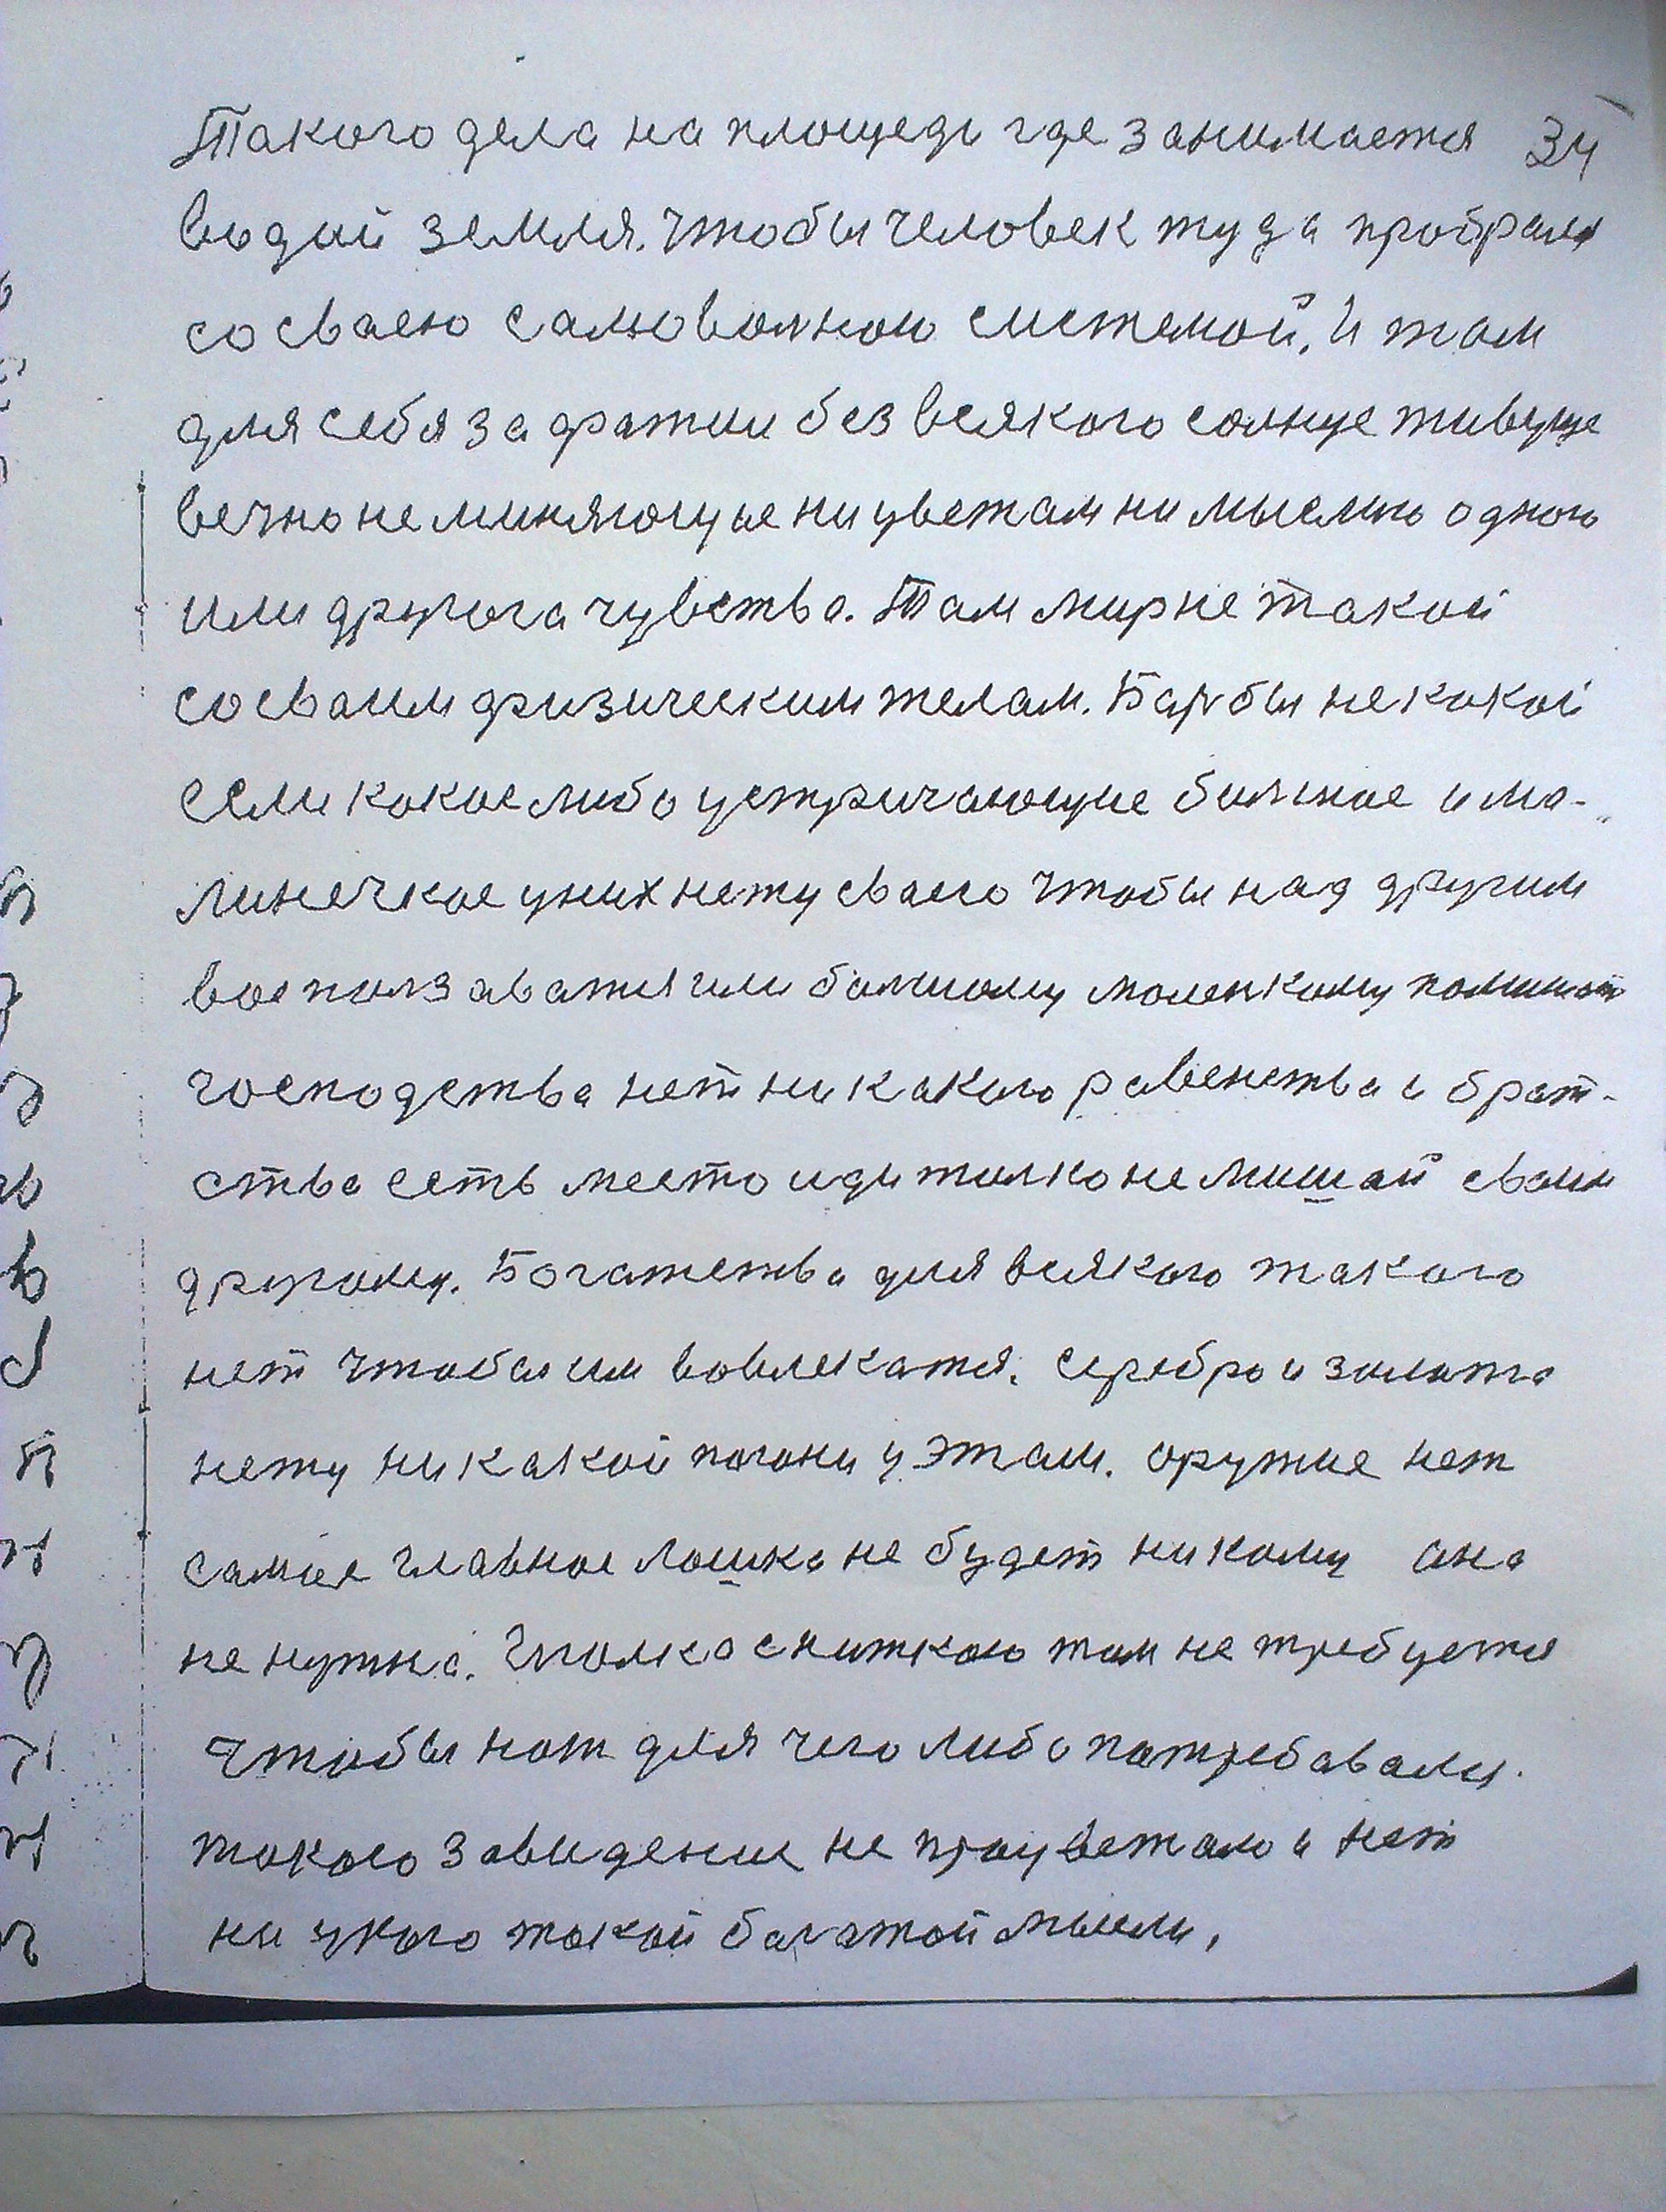 Такого дела на площеди где занимается 34
водой земля. Чтобы человек туда пробрался
со сваею самовольною системой. И там
для себя за фатии без всякого солнце живущие
вечно не миняющие ни цветам ни мыслию одного
или другога чувства. Там мир не такой
со сваим физическим телам. Барбы не какой
если какое либо устричающие большое и ма-
линечкое у них нету сваего чтобы над другим
воспользаватися или большому маленькому
господства нет ни какого равенства и брат-
ства есть место иди только не мишай сваим
другому. Богатства для всякого такого
нет чтобы им вовлекатся. Серебро и золота
нету ни какой погони у этам. оружие нет
самае главное лошка не будет никому ана
не нужна. Иголка с ниткою там не требуется
Чтобы нож для чего либо патребавали.
такого завидение не працветало и нет
ни укого такой багатой мысли,